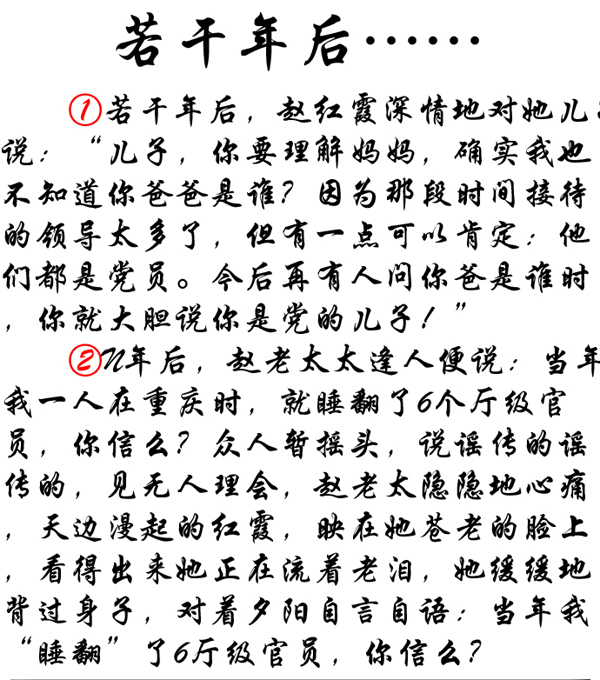 若干年后……
①若干年后，赵红霞深情地对她儿
说：“儿子，你要理解妈妈，确实我也
不知道你爸爸是谁？因为那段时间接待
的领导太多了，但有一点可以肯定：他
们都是党员。今后再有人问你爸是谁时
，你就大胆说你是党的儿子！”
②N年后，赵老太太逢人便说：当年
我一人在重庆时，就睡翻了6个厅级官
员，你信么？众人暂摇头，说谣传的谣
传的，见无人理会，赵老太隐隐地心痛
，天边漫起的红霞，映在她苍老的脸上
，看得出来她正在流着老泪，她缓缓地
背过身子，对着夕阳自言自语：当年我
“睡翻”了6厅级官员，你信么？